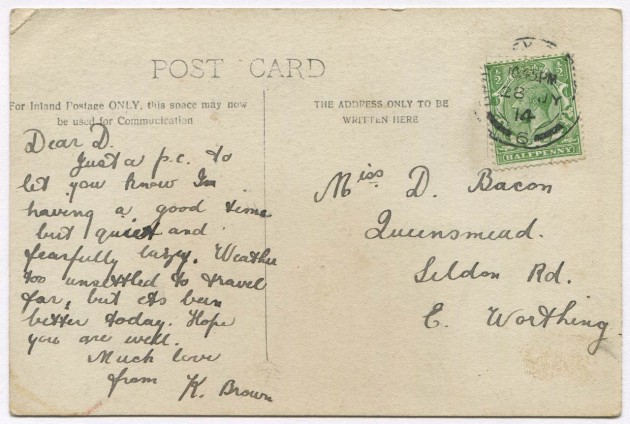 POST CARD
For Inland Postage ONLY, this space may now
be used for Communication
THE ADDRESS ONLY TO BE
WRITTEN HERE
Dear D.
Just a p.c. to
let you know Im
having a good time
but quiet and
fearfully lazy. Weather
too unsettled to travel
far, but its been
better today. Hope
you are well.
Much love
from K. Brown
Miss D. Bacon
Queensmead.
Seldon Rd.
E. Worthing
PM
28 JY
14
6
1/2 1/2
HALFPENNY